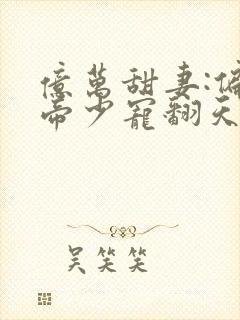 億萬甜妻:偏
帝少寵翻天
吴笑笑